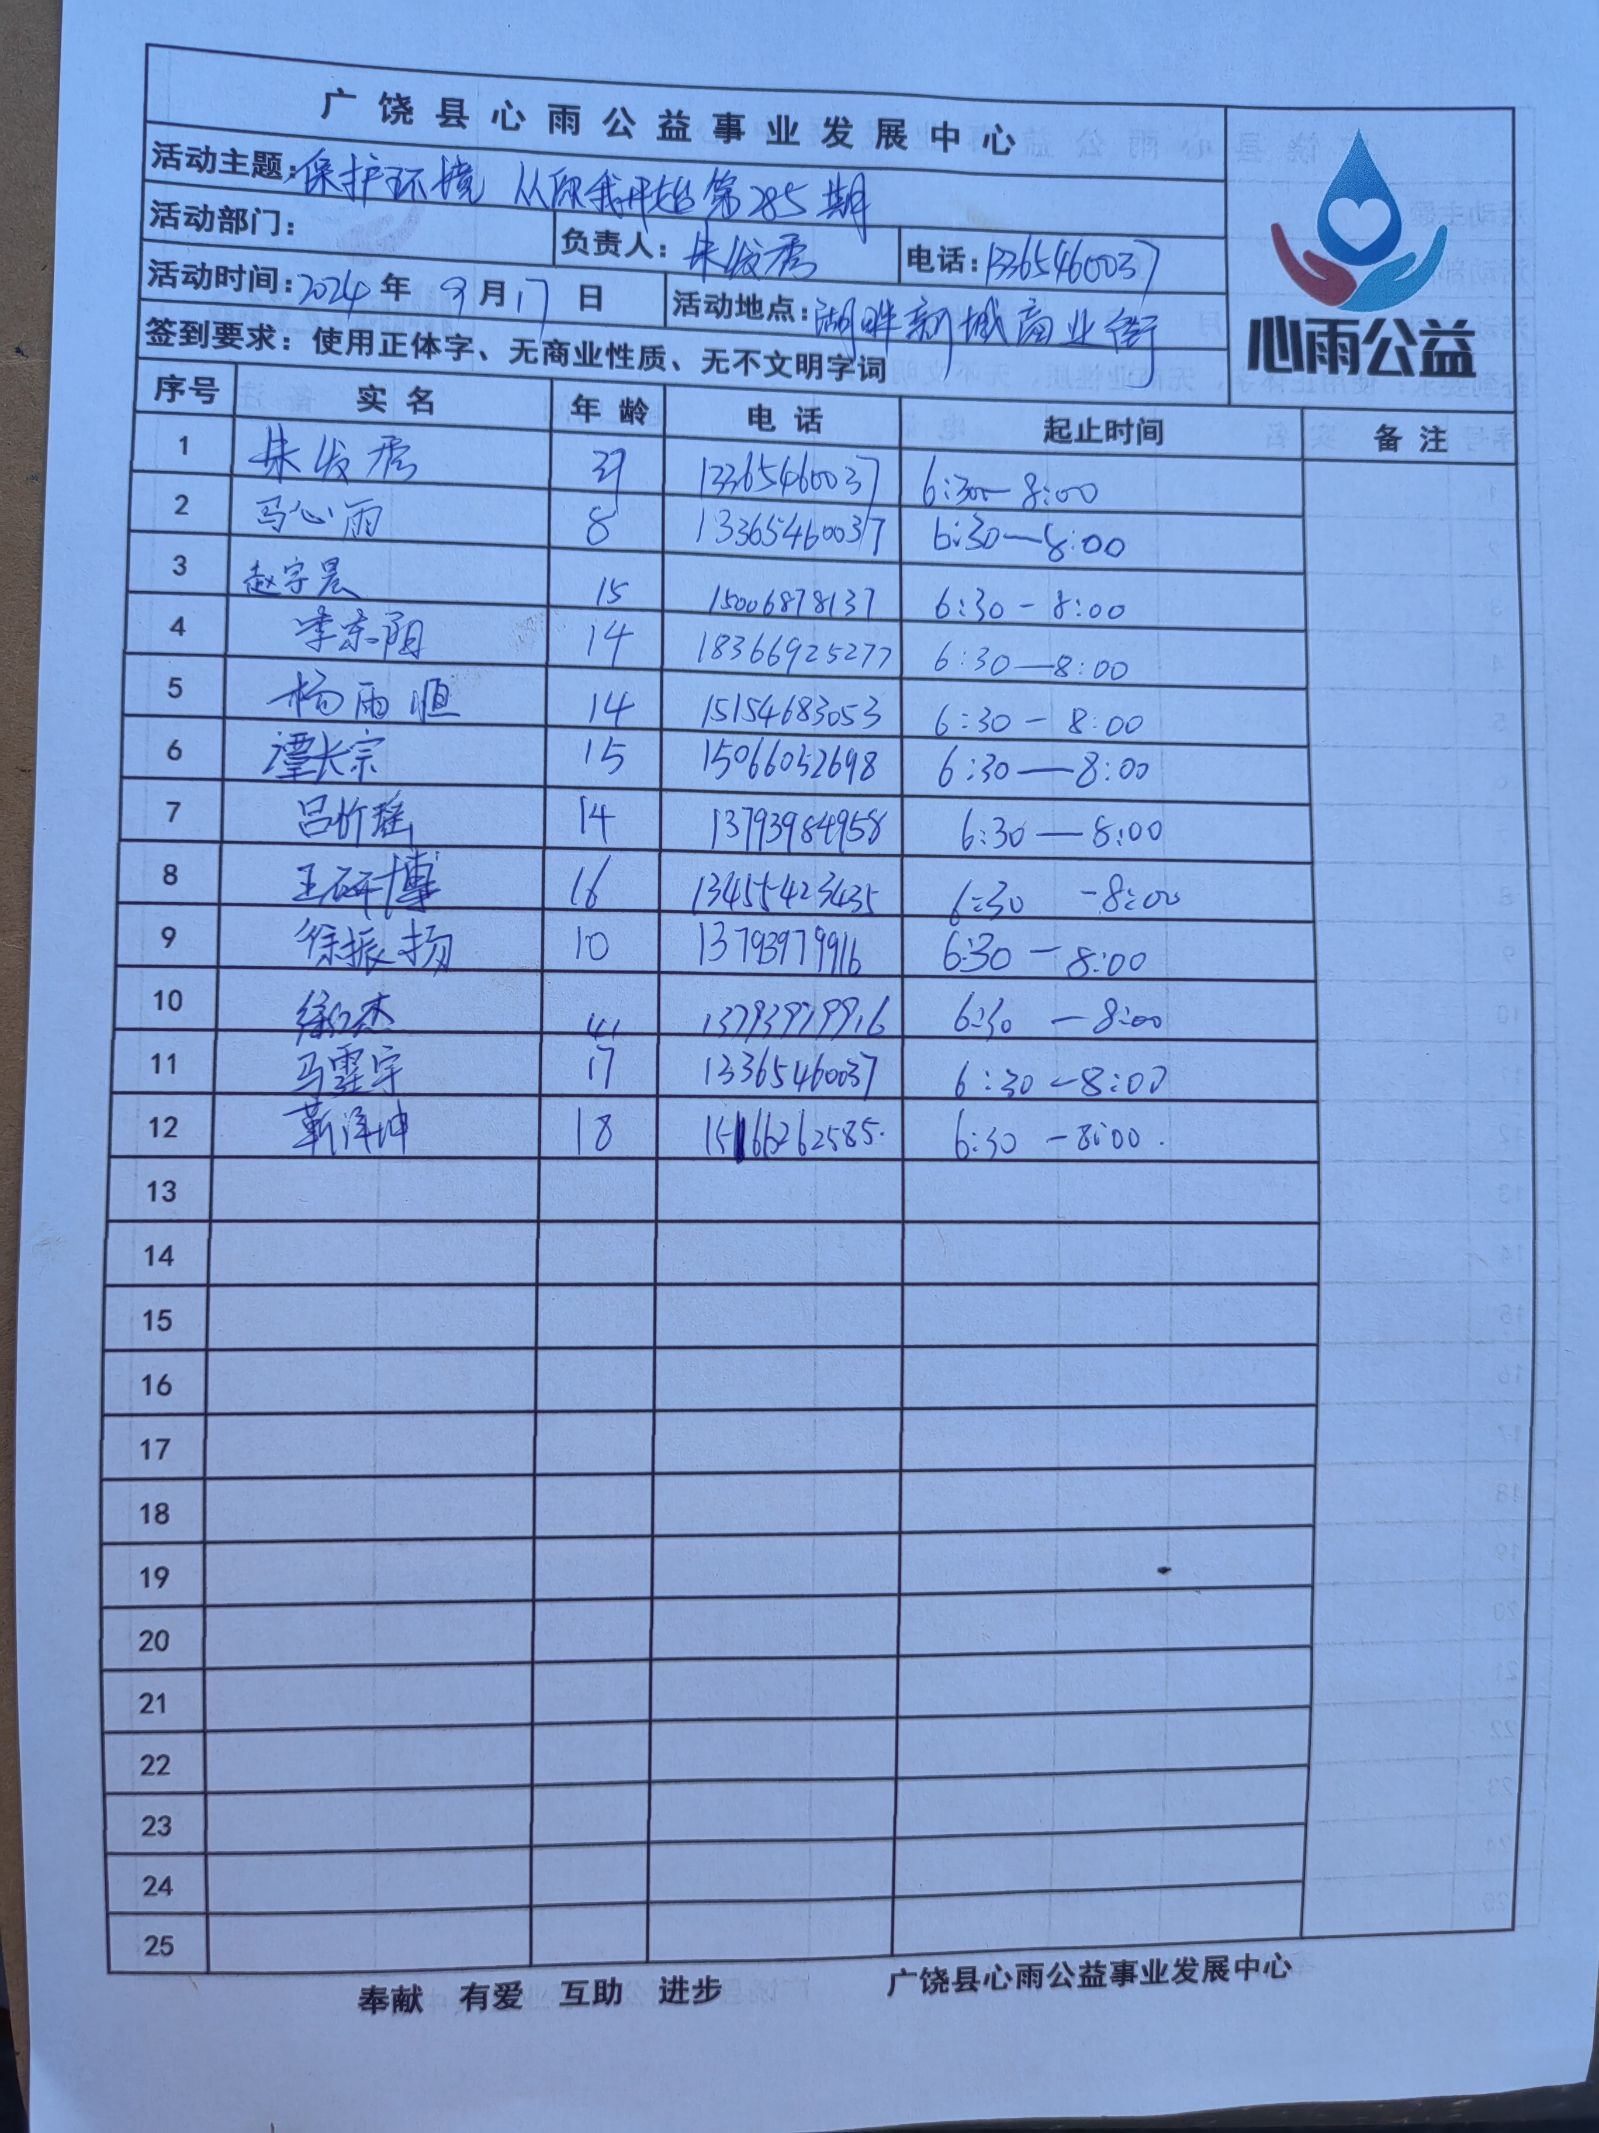 广饶县心雨公益事业发展中心
活动主题:保护环境 从你我开始第285期
活动部门: 负责人:朱发秀 电话:13365460037
活动时间:2024年9月17日 活动地点:湖畔新城商业街
签到要求:使用正体字、无商业性质、无不文明字词
心雨公益
序号 实名 年龄 电话 起止时间 备注
1 朱发秀 39 13365460037 6:30—8:00
2 马心雨 8 13365460037 6:30—8:00
3 赵宇晨 15 15006878137 6:30-8:00
4 李东阳 14 18366925277 6:30—8:00
5 杨雨恒 14 15154683053 6:30-8:00
6 谭长宗 15 15066052698 6:30—8:00
7 吕忻瑶 14 13793984958 6:30—8:00
8 王研博 16 13455423435 6:30-8:00
9 徐振扬 10 13793979916 6:30-8:00
10 徐仁杰 41 13793979916 6:30-8:00
11 马霆宇 17 13365460037 6:30-8:00
12 靳洋坤 18 15166262585. 6:30-8:00.
13
14
15
16
17
18
19
20
21
22
23
24
25
奉献 有爱 互助 进步 广饶县心雨公益事业发展中心